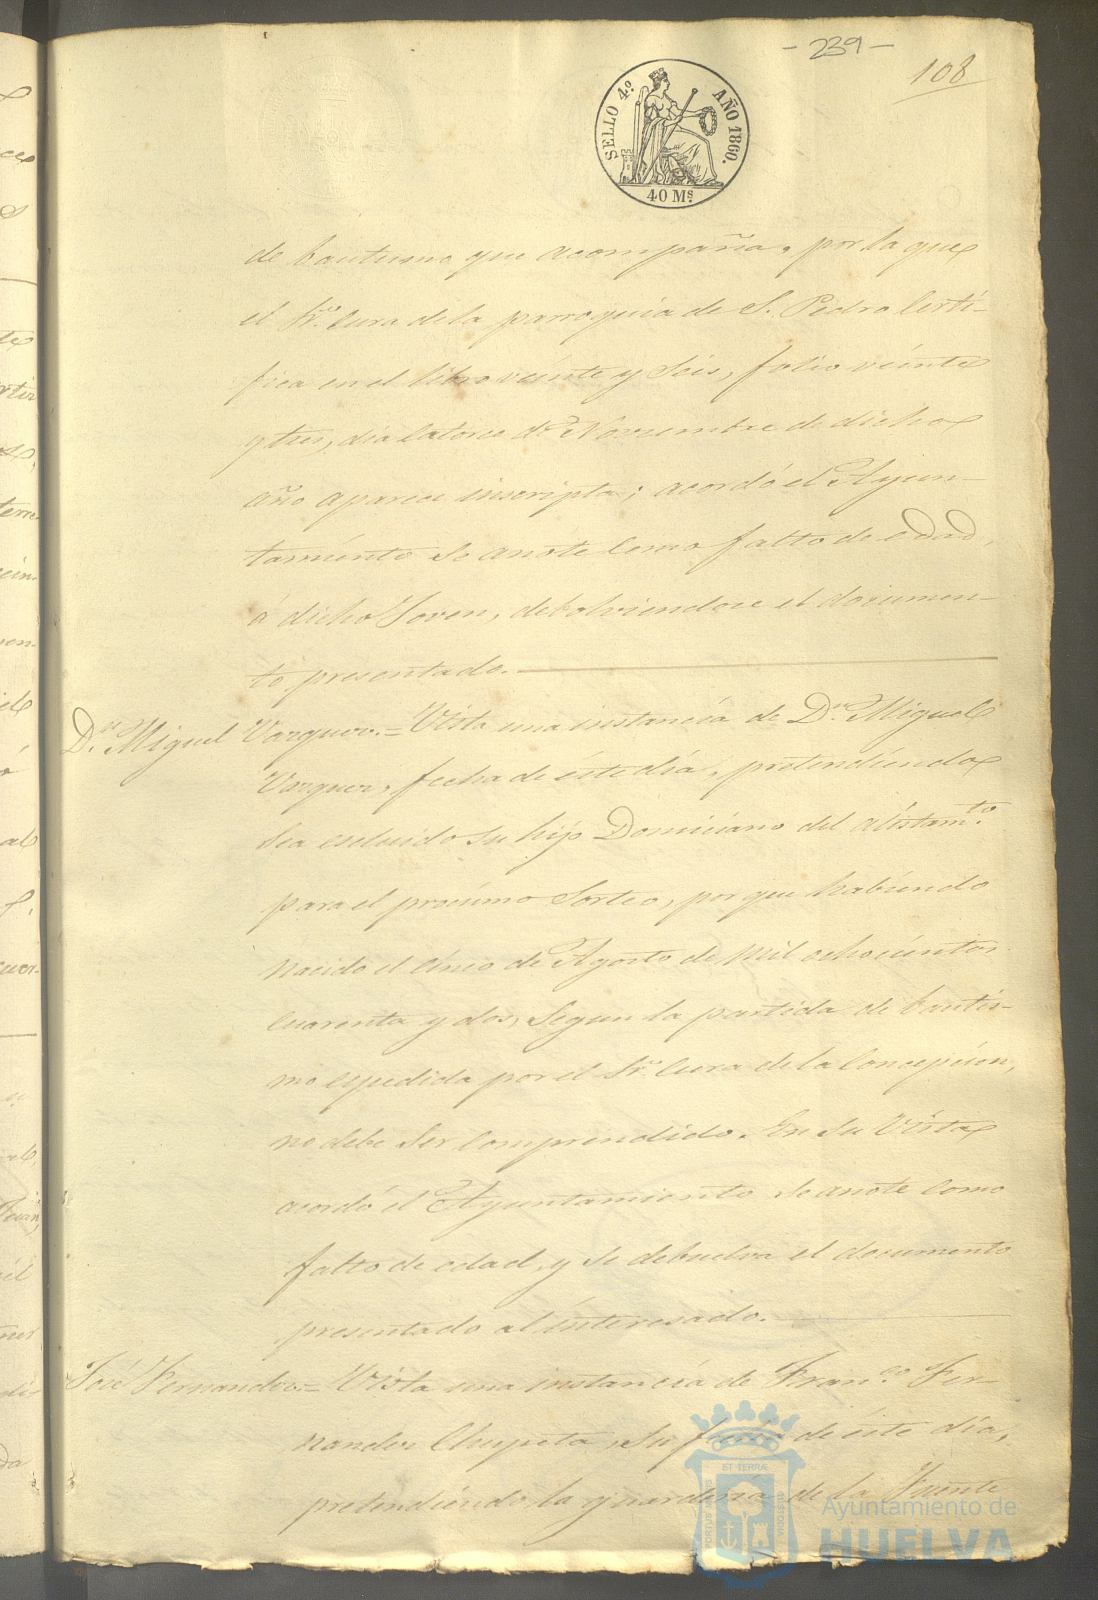 - 239 -
108
SELLO 4.º AÑO 1860.
40 Ms.
de bautismo que acompaña, por la que
el Sr. Cura de la parroquia de S. Pedro Certi-
fica en el libro veinte y Seis, folio veinte
y tres, dia Catorce de Noviembre de dicho
año aparece inscripta; acordó el Ayun-
tamiento se anote Como falto de edad,
á dicho Joven, debolviendose el documen-
to presentado.
D.n Miguel Vazquez.= Vista una instancia de D.n Miguel
Vazquez, fecha de éste dia, pretendiendo
Sea escluido su hijo Domiciano del alistam.to
para el procsimo Sorteo, por que habiendo
nacido el cinco de Agosto de mil ochocientos
cuarenta y dos, Segun la partida de bautis-
mo espedida por el Sr. Cura de la Concepcion,
no debe Ser Comprendido. En Su Vista
acordó el Ayuntamiento Se anote Como
falto de edad, y Se debuelva el documento
presentado al interesado.
José Fernandez.= Vista una instancia de Fran.co Fer-
nandez Chupeta, su fecha de éste dia,
pretendiendo la guarderia de la Fuente
PORTUS MARIS ET TERRÆ CUSTODIA
Ayuntamiento de
HUELVA